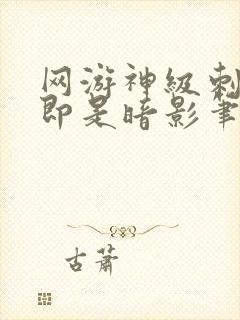 网游神级刺
即是暗影筆
古蕭